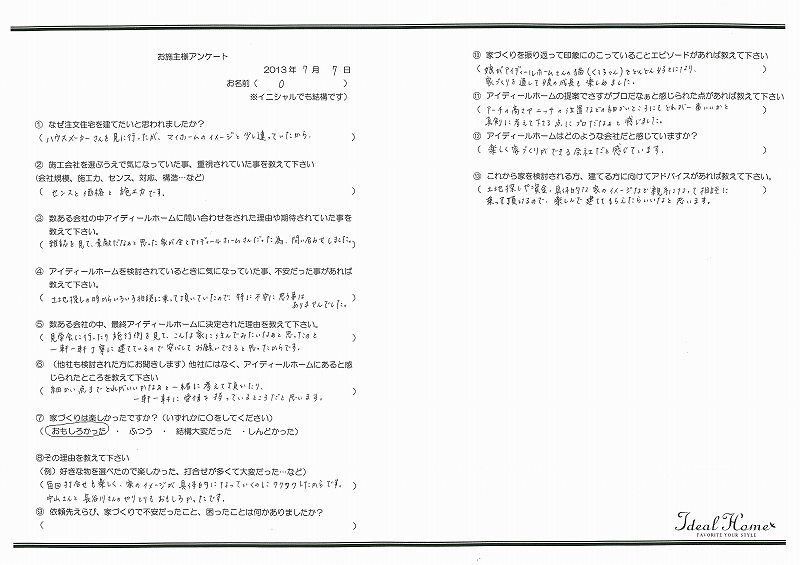 お施主様アンケート
2013年 7月 7日
お名前( O )
※イニシャルでも結構です)
① なぜ注文住宅を建てたいと思われましたか?
(ハウスメーターさんを見に行ったが、マイホームのイメージと少し違っていたから。)
② 施工会社を選ぶうえで気になっていた事、重視されていた事を教えて下さい
(会社規模、施工力、センス、対応、構造…など)
(センスと価格と施工力です。)
③ 数ある会社の中アイディールホームに問い合わせをされた理由や期待されていた事を
教えて下さい。
(雑誌を見て、素敵だなぁと思った家が全てアイディールホームさんだった為、問い合わせしました。)
④ アイディールホームを検討されているときに気になっていた事、不安だった事があれば
教えて下さい。
(土地探しの時からいろいろ相談に乗って頂いていたので、特に不安に思う事は
ありませんでした。)
⑤ 数ある会社の中、最終アイディールホームに決定された理由を教えて下さい。
(見学会に行ったり施行例を見て、こんな家に住んでみたいなぁと思ったのと
一軒一軒丁寧に建てているので安心してお願いできると思ったからです。)
⑥ (他社も検討された方にお聞きします)他社にはなく、アイディールホームにあると感
じられたところを教えて下さい
(細かい点までどれがいいかなぁと一緒に考えて頂いたり、
一軒一軒に愛情を持っているところだと思います。)
⑦ 家づくりは楽しかったですか?(いずれかに○をしてください)
( おもしろかった ・ ふつう ・ 結構大変だった ・しんどかった)
⑧その理由を教えて下さい
(例)好きな物を選べたので楽しかった、打合せが多くて大変だった…など)
(毎回打合せも楽しく、家のイメージが具体的になっていくのにワクワクしたからです。)
中山さんと長谷川さんのやりとりもおもしろかったです。
⑨ 依頼先えらび、家づくりで不安だったこと、困ったことは何かありましたか?
( )
⑩ 家づくりを振り返って印象にのこっていることエピソードがあれば教えて下さい
(娘がアイディールホームさんの猫(くぅちゃん)をどんどん好きになり、
家づくりを通して娘の成長も楽しめました。)
⑪ アイディールホームの提案でさすがプロだなぁと感じられた点があれば教えて下さい
(アーチの高さやニッチの位置などの細かいところにもどれが一番いいかと
真剣に考えて下さる点にプロだなぁと感じました。)
⑫ アイディールホームはどのような会社だと感じていますか?
(楽しく家づくりができる会社だと感じています。)
⑬ これから家を検討される方、建てる方に向けてアドバイスがあれば教えて下さい。
(土地探しや資金、具体的な家のイメージなど親身になって相談に
乗って頂けるので、楽しんで建ててもらえたらいいなと思います。)
Ideal Home
FAVORITE YOUR STYLE